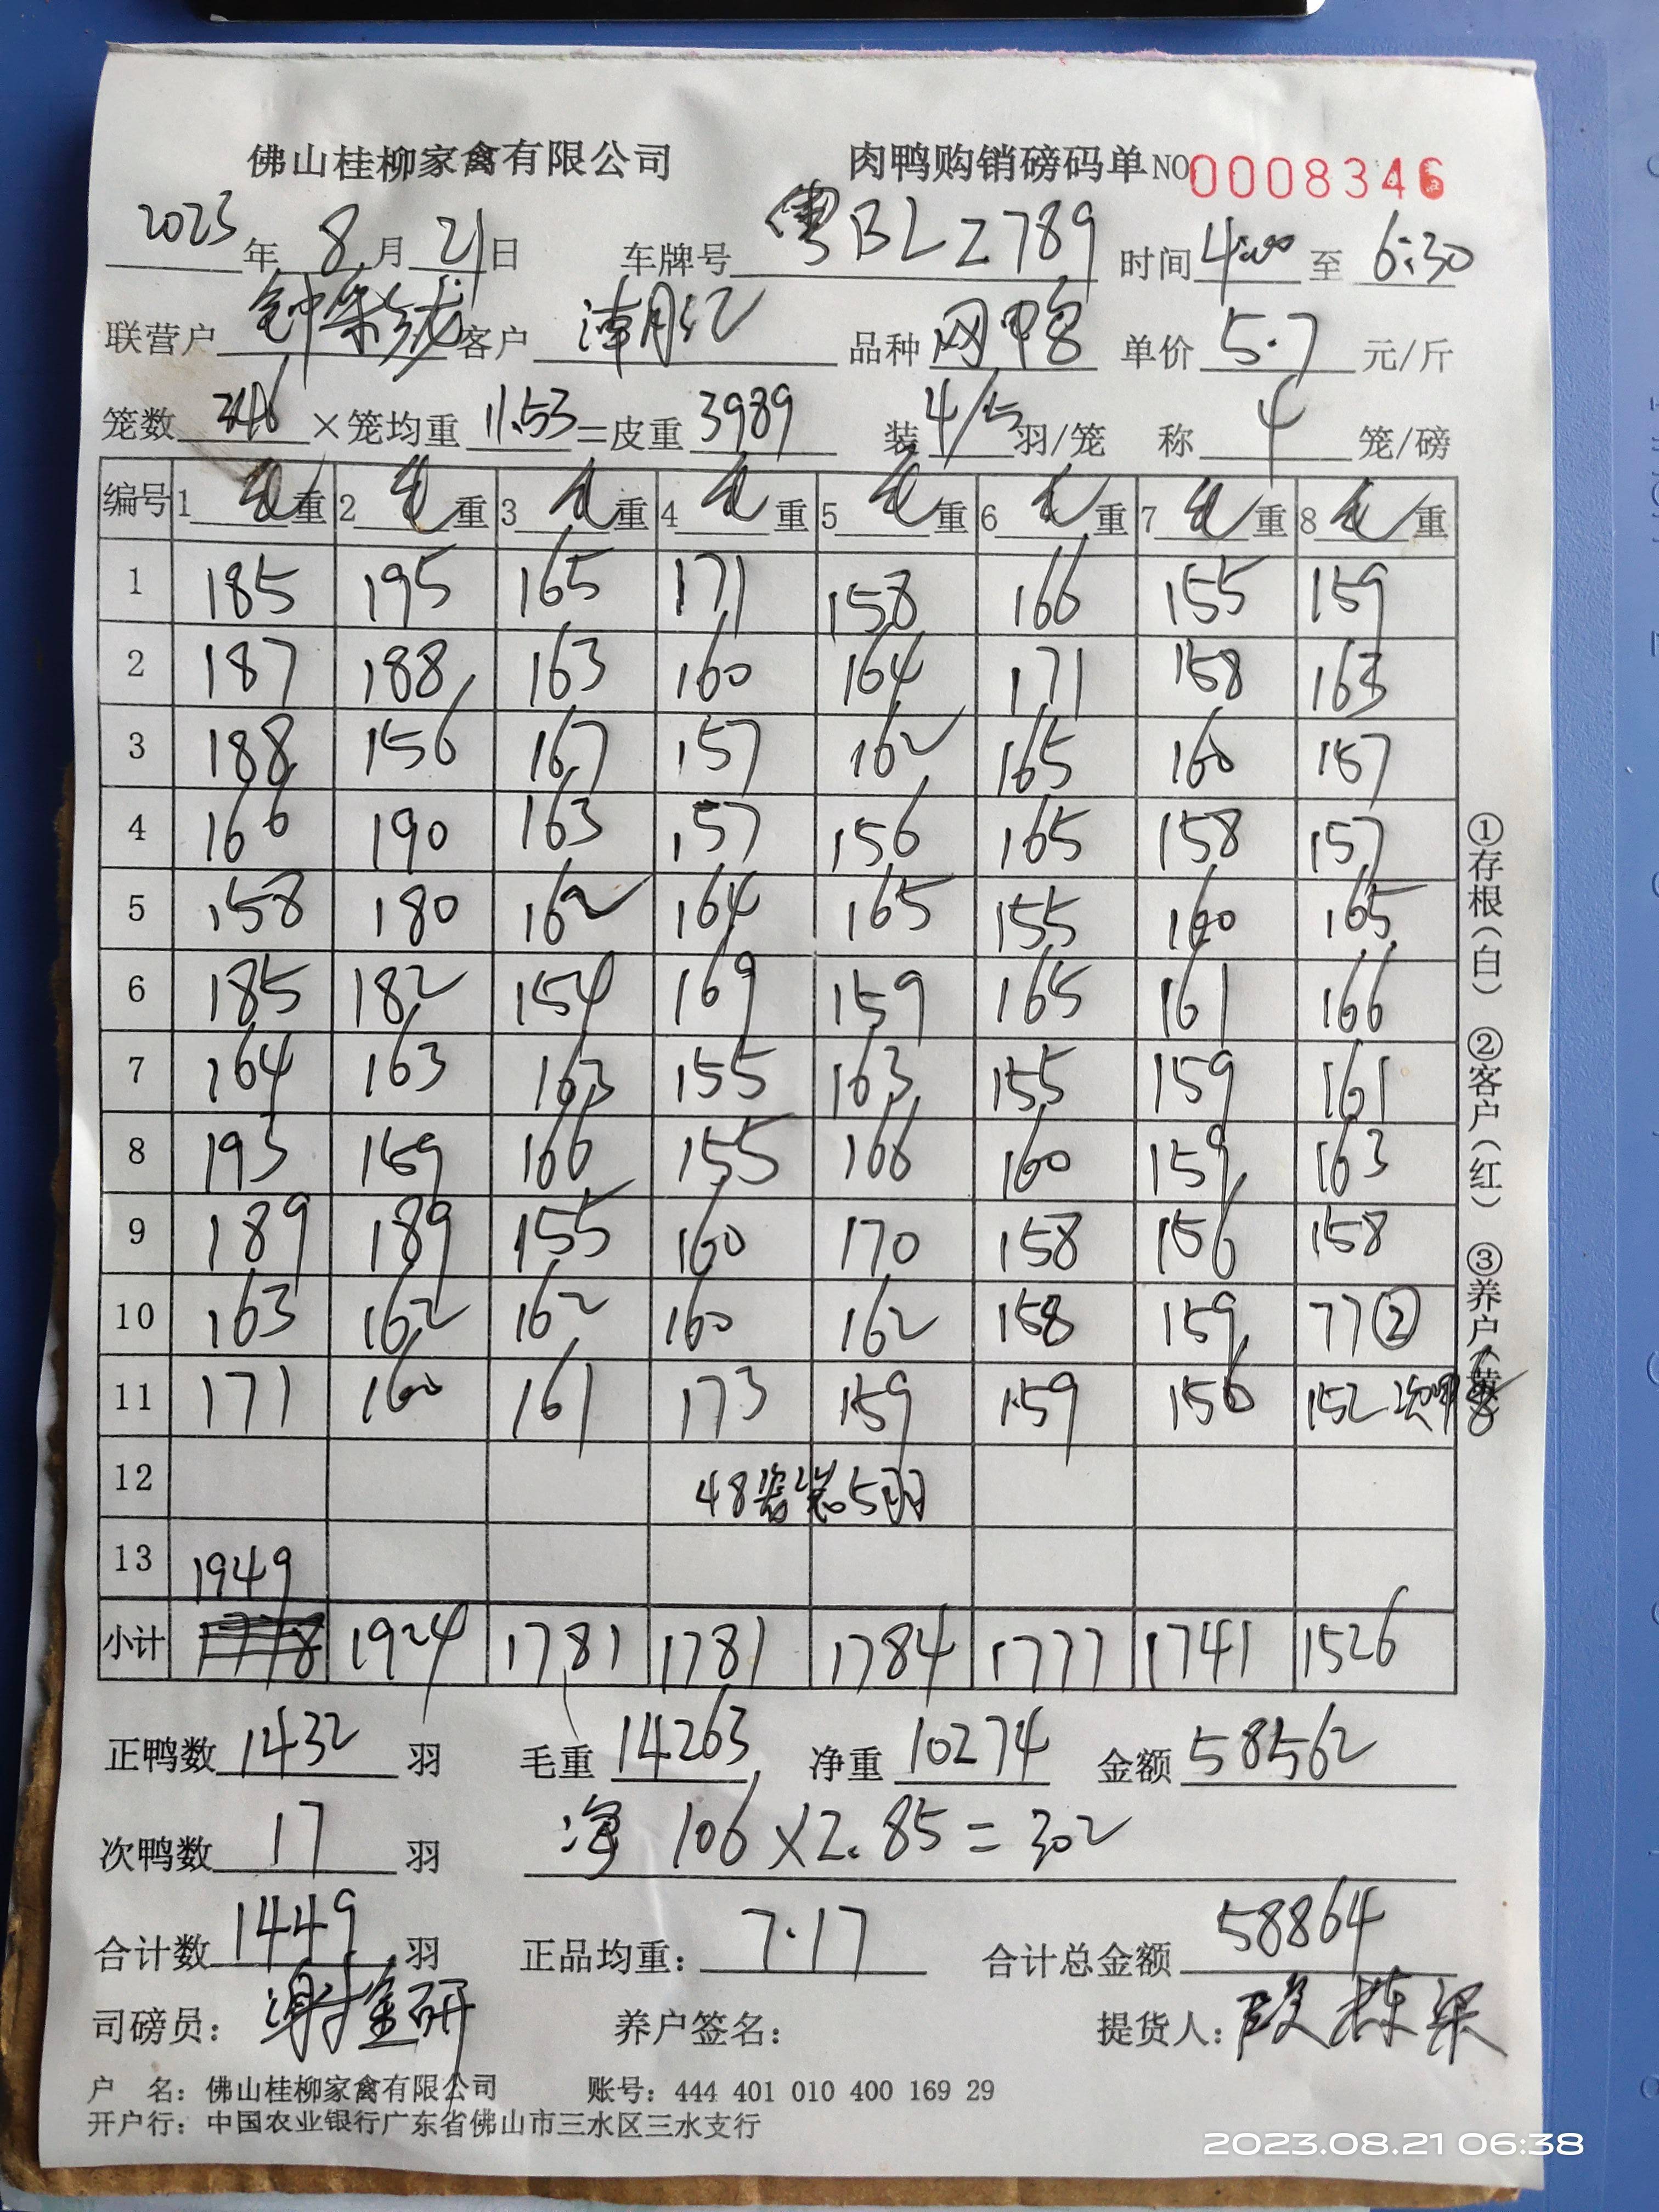 佛山桂柳家禽有限公司 肉鸭购销磅码单 NO 0008346
2023年 8月 21日 车牌号 粤BLZ789 时间 4:00 至 6:30
联营户 钟 客户 品种 鸭 单价 5.7 元/斤
笼数 346 ×笼均重 11.53 =皮重 3989 装 4/5 羽/笼 称 4 笼/磅
编号 1 毛重 2 毛重 3 毛重 4 毛重 5 毛重 6 毛重 7 毛重 8 毛重
1 185 195 165 171 158 166 155 159
2 187 188 163 160 164 171 158 163
3 188 156 167 157 162 165 160 157
4 166 190 163 157 156 165 158 157
5 158 180 162 164 165 155 160 165
6 185 182 154 169 159 165 161 166
7 164 163 163 155 163 155 159 161
8 193 159 166 155 166 160 159 163
9 189 189 155 160 170 158 156 158
10 163 162 162 160 162 158 159 77②
11 171 160 161 173 159 159 156 152 次鸭
12 48 装5羽
13 1949
小计 1778 1924 1781 1781 1784 1777 1741 1526
正鸭数 1432 羽 毛重 14263 净重 10274 金额 58562
次鸭数 17 羽 净 106×2.85=302
合计数 1449 羽 正品均重: 7.17 合计总金额 58864
司磅员: 谢金研 养户签名: 提货人: 段栋梁
户 名: 佛山桂柳家禽有限公司 账号: 444 401 010 400 169 29
开户行: 中国农业银行广东省佛山市三水区三水支行
①存根(白) ②客户(红) ③养户(黄)
2023.08.21 06:38